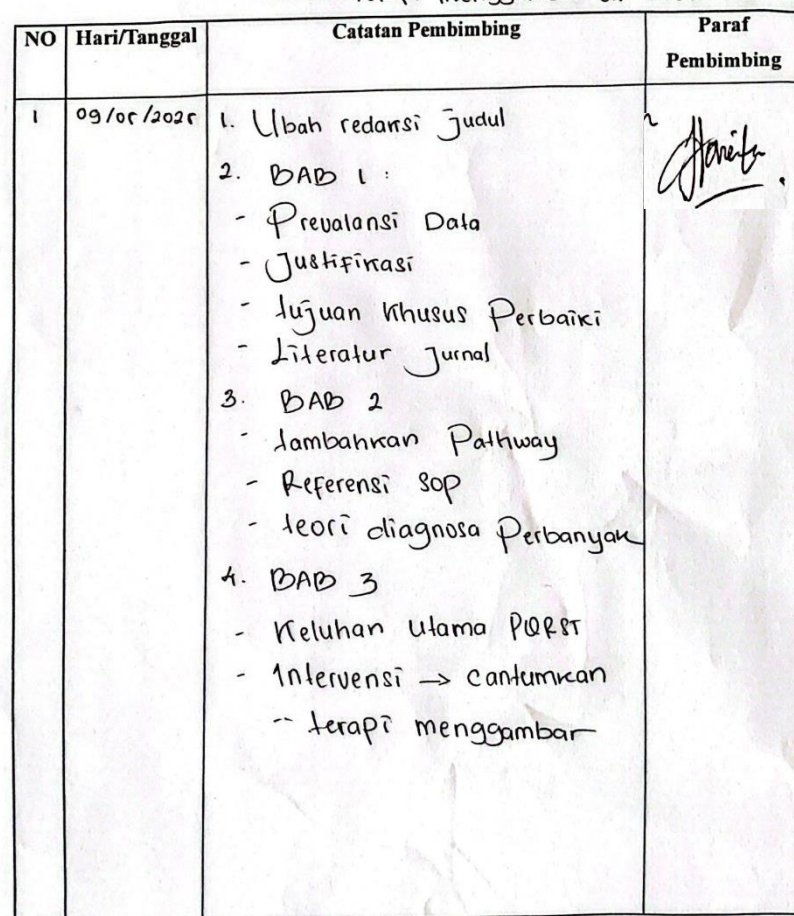 NO Hari/Tanggal Catatan Pembimbing Paraf Pembimbing
1 09/05/2025 1. Ubah redaksi Judul
2. BAB 1 :
- Prevalansi Data
- Justifikasi
- tujuan khusus Perbaiki
- Literatur Jurnal
3. BAB 2
- tambahkan Pathway
- Referensi SOP
- teori diagnosa Perbanyak
4. BAB 3
- Keluhan Utama PQRST
- Intervensi → cantumkan
-- terapi menggambar